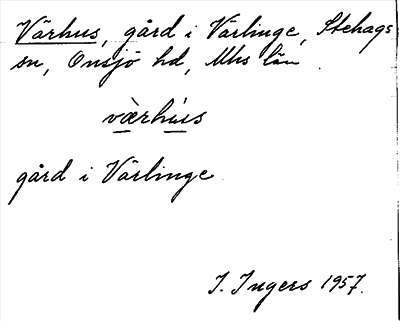 Värhus, gård i Värlinge, Stehags
sn, Onsjö hd, Mhs län
væ̀rhús
gård i Värlinge
I. Ingers 1957.